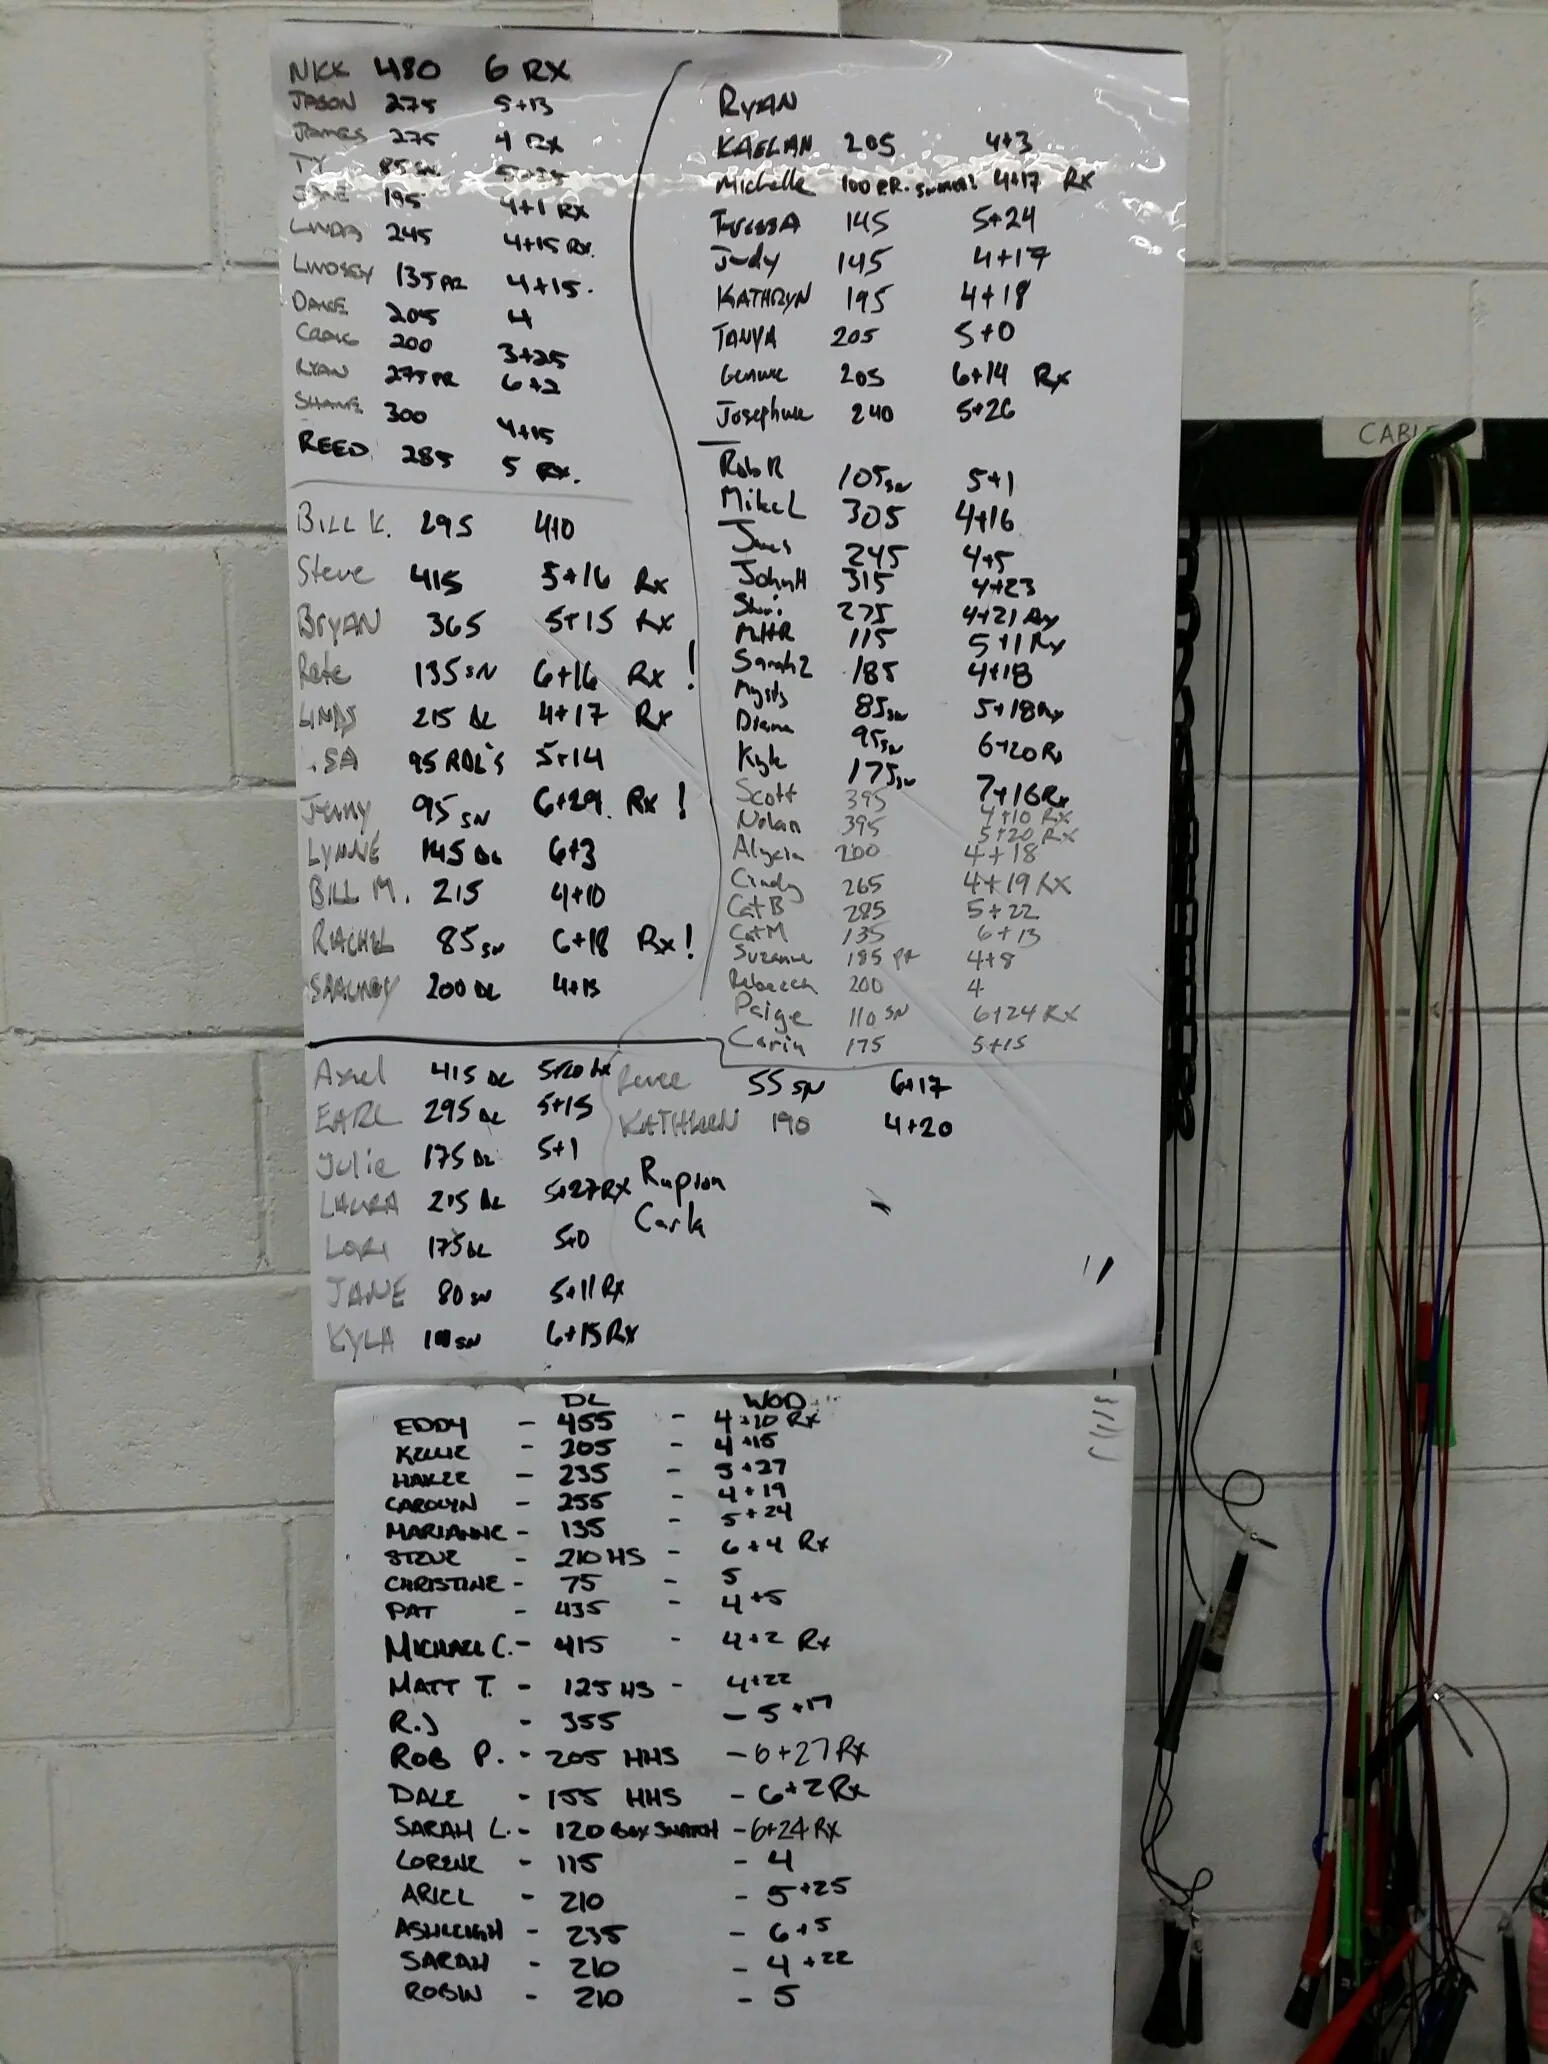 NICK 480 6 RX
JASON 275 5+13
JAMES 275 4 RX
TY 85 SN
195 4+1 RX
LINDA 245 4+15 RX.
LINDSEY 135 PR 4+15.
DAVE 205 4
CRAIG 200 3+25
RYAN 275 PR 6+2
SHANE 300 4+15
REED 285 5 RX.
BILL K. 295 4+0
Steve 415 5+16 Rx
BRYAN 365 5+15 Rx
135 SN 6+16 Rx !
215 DL 4+17 Rx
SA 95 RDL'S 5+14
Jenny 95 SN 6+29. Rx !
LYNNE 145 DL 6+3
BILL M. 215 4+10
RACHEL 85 SN 6+18 Rx !
200 DL 4+15
RYAN
KAELAN 205 4+3
Michelle 100 PR. 4+17 Rx
145 5+24
Judy 145 4+17
KATHRYN 195 4+18
TANYA 205 5+0
205 6+14 Rx
Josephine 240 5+26
Rob R 105 SN 5+1
Mike L 305 4+16
245 4+5
John H 315 4+23
275 4+21 Rx
115 5+11 Rx
Sarah Z 185 4+18
85 SN 5+18 Rx
Diana 95 SN 6+20 Rx
Kyle 175 SN 7+16 Rx
Scott 395 4+10 RX
Nolan 395 5+20 RX
Alycia 200 4+18
Cindy 265 4+19 RX
Cat B 285 5+22
Cat M 135 6+13
Suzanne 185 PR 4+8
Rebecca 200 4
Paige 110 SN 6+24 RX
Carin 175 5+15
Axel 415 DL 5+20 Rx
EARL 295 DL 5+15
Julie 175 DL 5+1
LAURA 215 DL 5+27 RX
LORI 175 DL 5+0
JANE 80 SN 5+11 Rx
KYLA SN 6+15 RX
Renee 55 SN 6+17
KATHLEEN 190 4+20
Carla
DL WOD
EDDY - 455 - 4+10 Rx
KELLIE - 205 - 4+15
HAKEE - 235 - 5+27
CAROLYN - 255 - 4+19
MARIANNE - 135 - 5+24
STEVE - 210 HS - 6+4 Rx
CHRISTINE - 75 - 5
PAT - 435 - 4+5
MICHAEL C. - 415 - 4+2 Rx
MATT T. - 125 HS - 4+22
R.J - 355 - 5+17
ROB P. - 205 HHS - 6+27 Rx
DALE - 155 HHS - 6+2 Rx
SARAH L. - 120 BOX SNATCH - 6+24 RX
LORENE - 115 - 4
ARIEL - 210 - 5+25
ASHLEIGH - 235 - 6+5
SARAH - 210 - 4+22
ROBIN - 210 - 5
CABLE